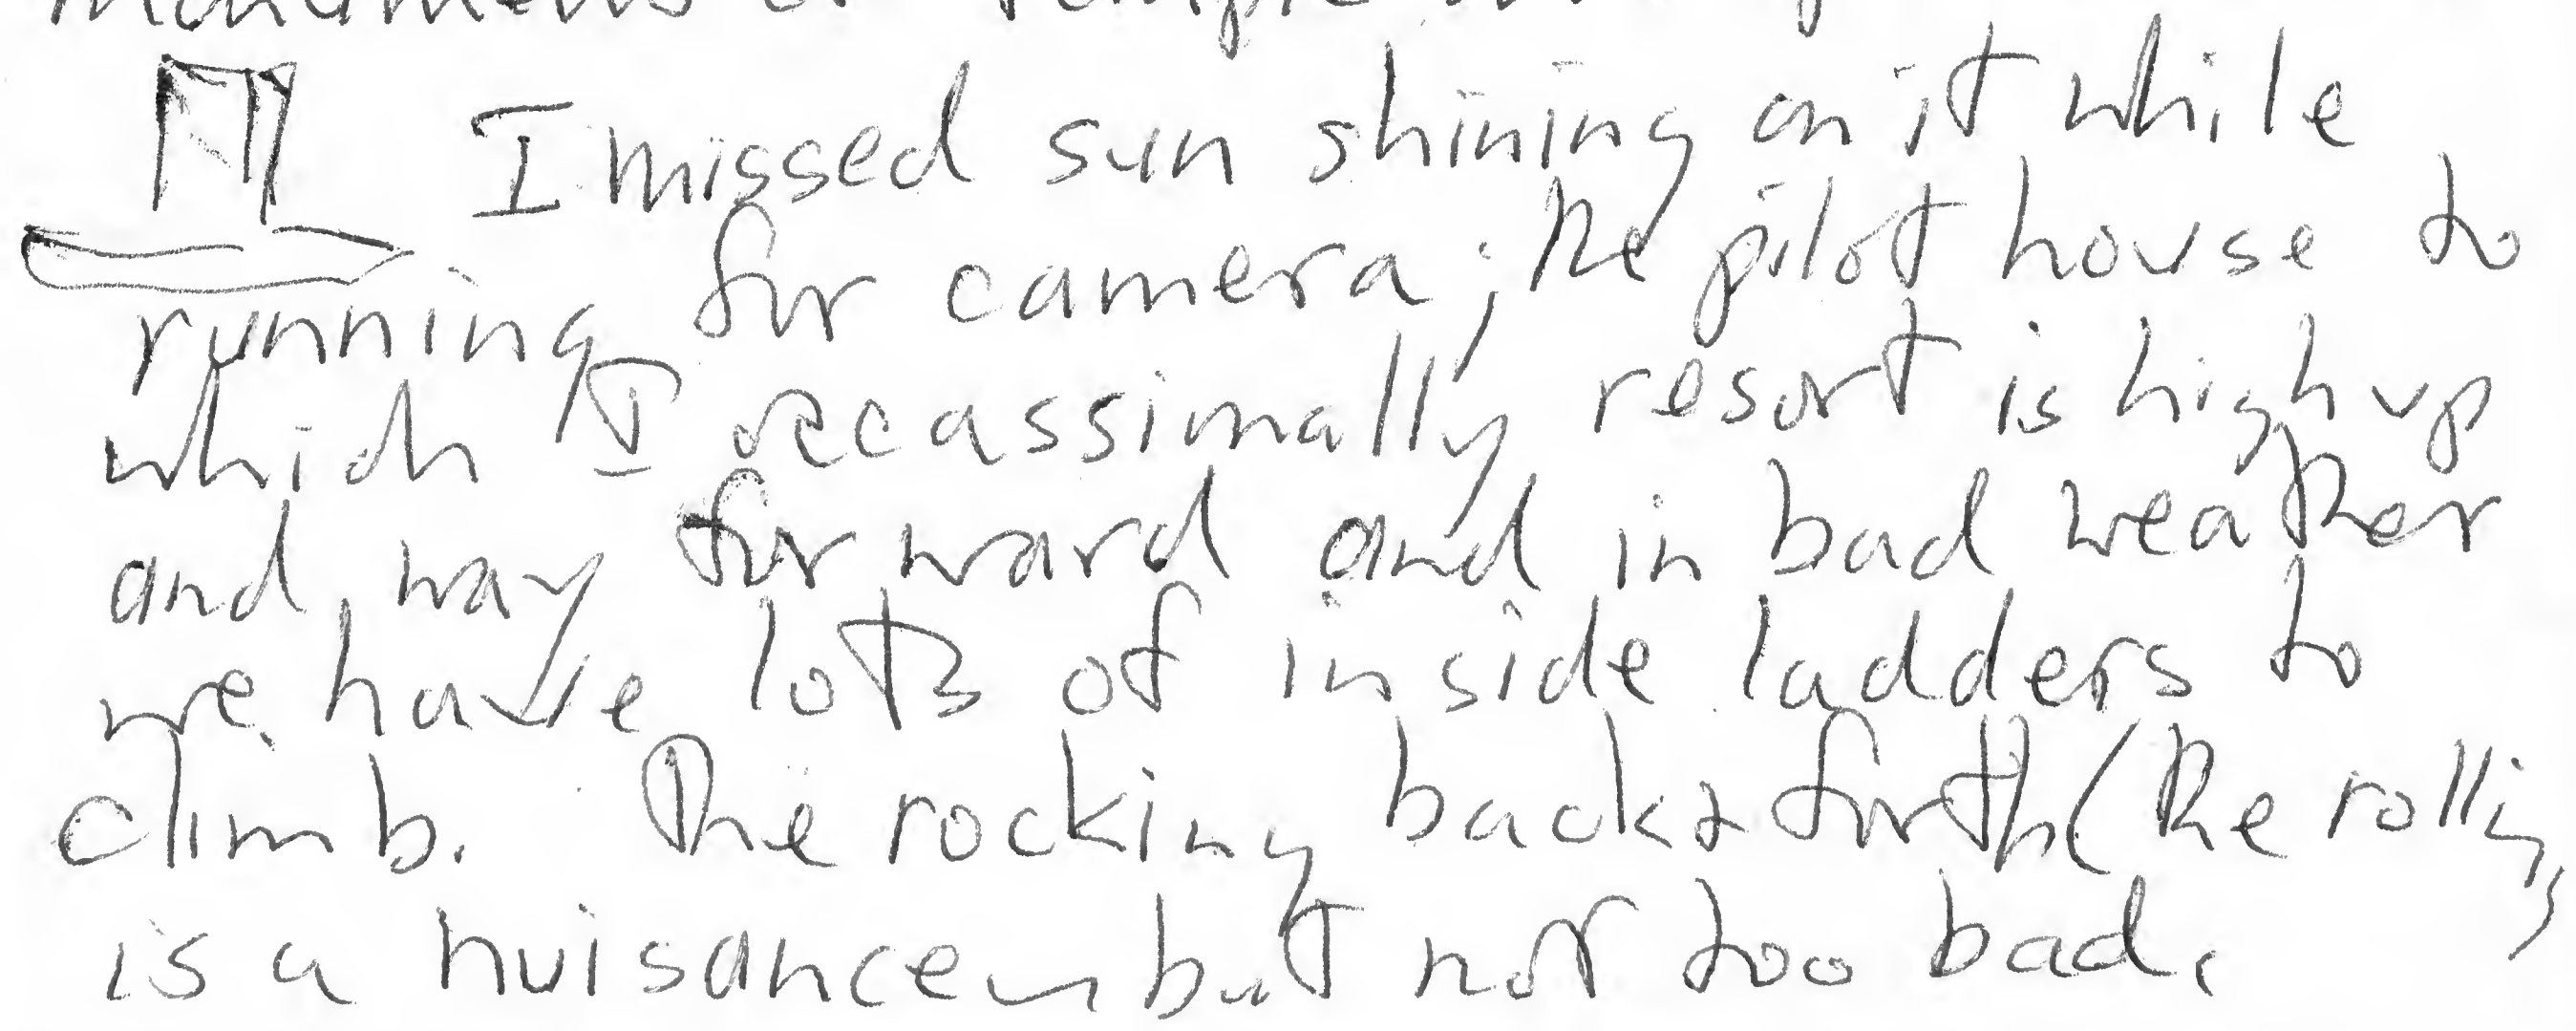 I missed sun shining on it while
running for camera; the pilot house to
which I occassionally resort is high up
and way forward and in bad weather
we have lots of inside ladders to
climb. The rocking back & forth (the rolling)
is a nuisance but not too bad.